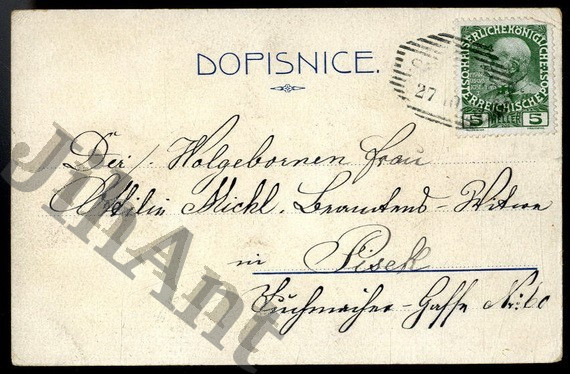 DOPISNICE.
KAISERLICHE KÖNIGLICHE ÖSTERREICHISCHE POST
5 HELLER 5
27
Der Wolgebornen Frau
Ottilie Michl. Beamtens-Witwe
in Pisek
Tuchmacher-Gasse Nr:
JihAnt